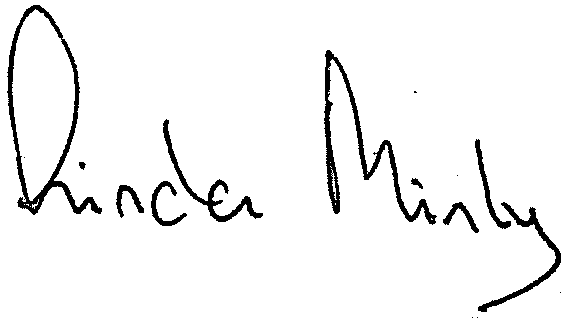 Linda Minky